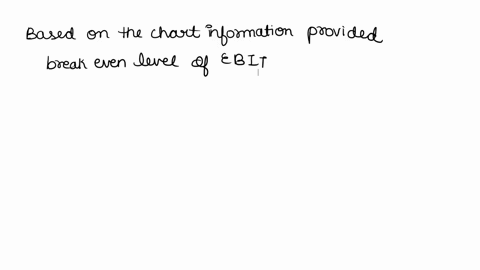 Based on the chart information provided
break even level of EBIT